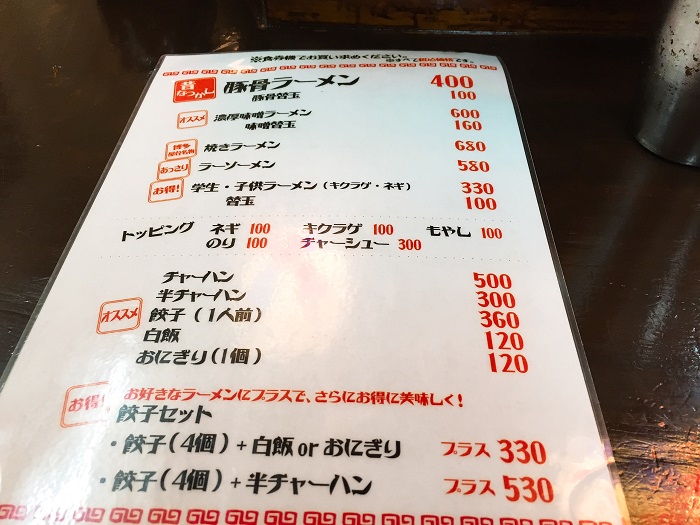 ※食券機でお買い求めください。
昔なつかし 豚骨ラーメン 400
豚骨替玉 100
オススメ 濃厚味噌ラーメン 600
味噌替玉 160
博多屋台名物 焼きラーメン 680
あっさり ラーソーメン 580
お得! 学生・子供ラーメン（キクラゲ・ネギ） 330
替玉 100
トッピング ネギ 100 キクラゲ 100 もやし 100
のり 100 チャーシュー 300
チャーハン 500
半チャーハン 300
オススメ 餃子（1人前） 360
白飯 120
おにぎり（1個） 120
お得! お好きなラーメンにプラスで、さらにお得に美味しく!
餃子セット
・餃子（4個）+白飯orおにぎり プラス 330
・餃子（4個）+半チャーハン プラス 530